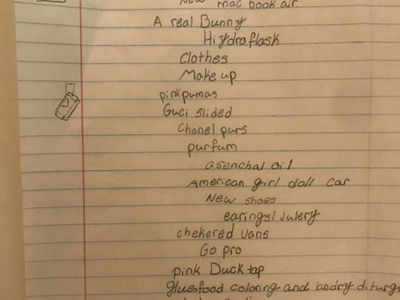 New mac book air
A real Bunny
Hydroflask
Clothes
Make up
pink pumas
Guci slided
Chanel purs
purfum
asenchal oil
American girl doll car
New shoes
earings/Julery
chekered vans
Go pro
pink Duck tap
food coloring and